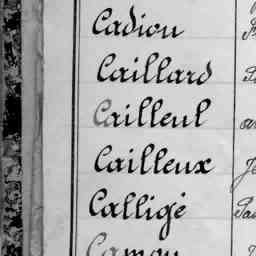 Cadiou
Caillard
Cailleul
Cailleux
Calligé
Camou